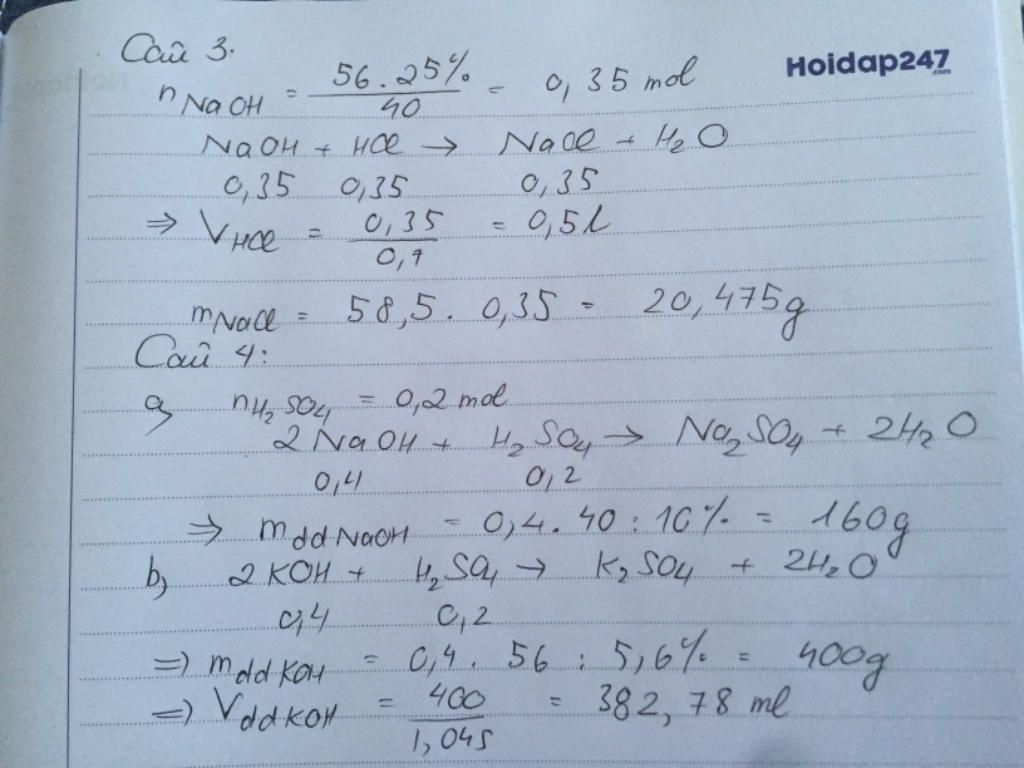 Câu 3.
Hoidap247
.com
n NaOH = 56.25% / 40 = 0,35 mol
NaOH + HCl → NaCl + H₂O
0,35 0,35 0,35
⇒ V HCl = 0,35 / 0,7 = 0,5l
m NaCl = 58,5. 0,35 = 20,475g
Câu 4:
a, n H₂SO₄ = 0,2 mol
2 NaOH + H₂SO₄ → Na₂SO₄ + 2H₂O
0,4 0,2
⇒ m dd NaOH = 0,4.40 : 10% = 160g
b, 2 KOH + H₂SO₄ → K₂SO₄ + 2H₂O
0,4 0,2
=) m dd KOH = 0,4. 56 : 5,6% = 400g
=) V dd KOH = 400 / 1,045 = 382,78 ml